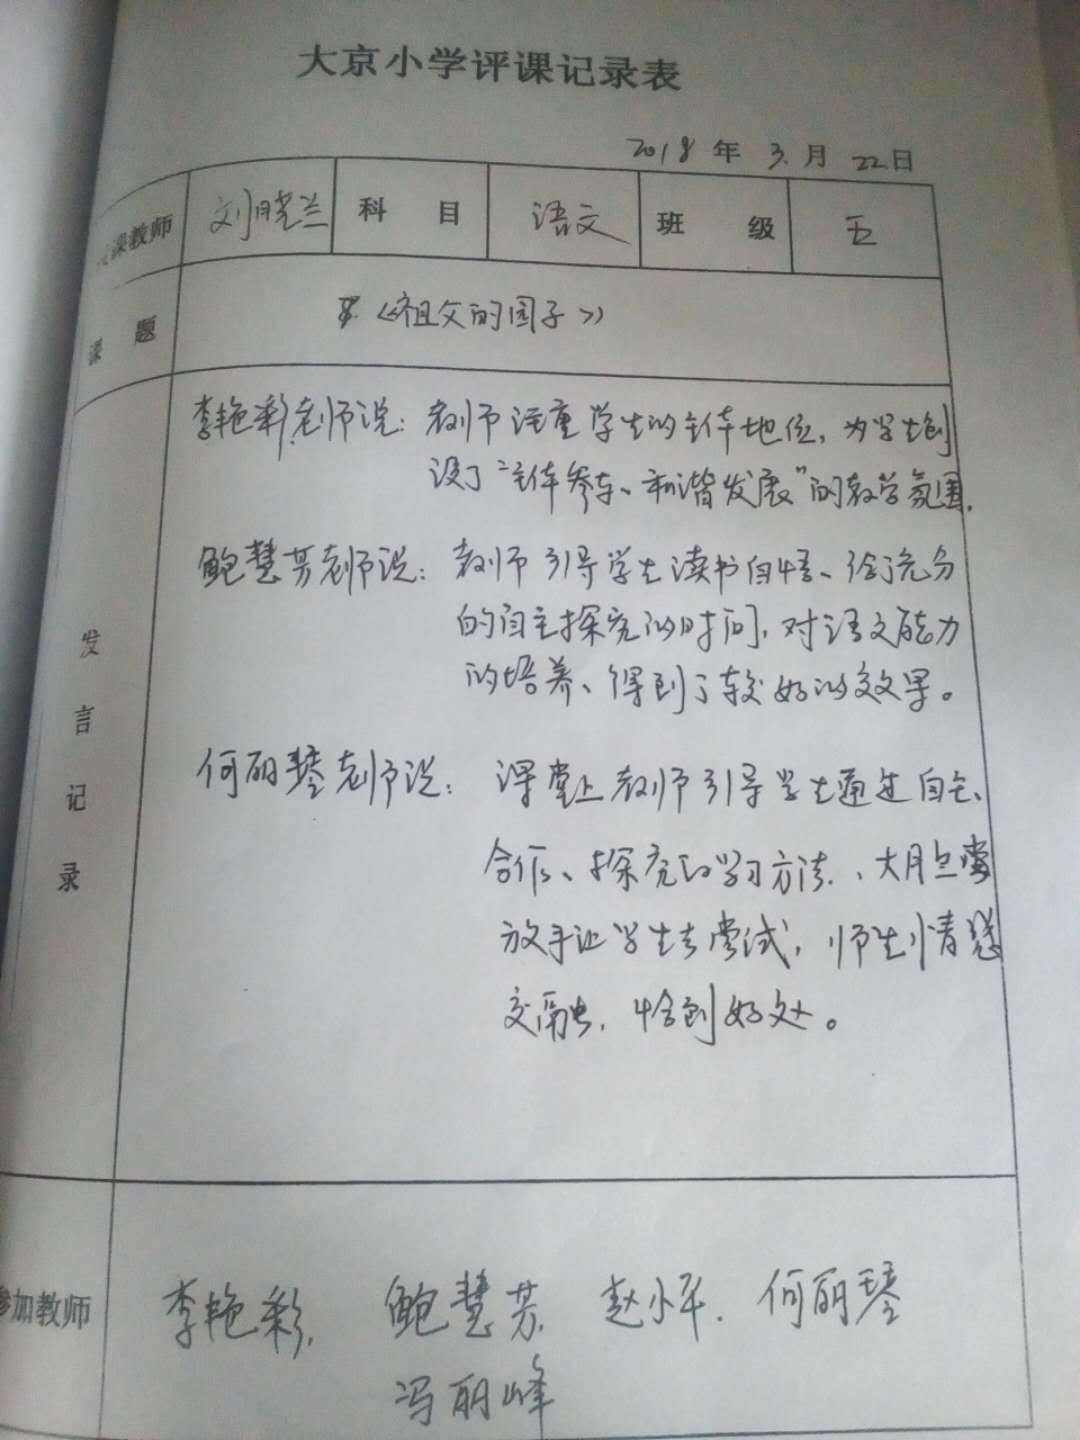 大京小学评课记录表
2018 年 3. 月 22日
课教师 刘晓兰 科 目 语文 班 级 五
课 题 《祖父的园子》
发言记录
李艳彩老师说: 教师注重学生的主体地位,为学生创
设了“主体参与、和谐发展”的教学氛围.
鲍慧芳老师说: 教师引导学生读书自悟、给了充分
的自主探究的时间,对语文能力
的培养、得到了较好的效果。
何丽琴老师说: 课堂上教师引导学生通过自主、
合作、探究的学习方法、大胆
放手让学生去尝试,师生情感
交融,恰到好处。
参加教师 李艳彩. 鲍慧芳. 赵小军. 何丽琴
冯丽峰